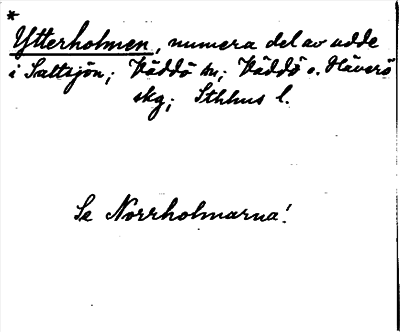 *
Ytterholmen, numera del av udde
i Saltsjön; Väddö sn; Väddö o. Häverö
skg; Sthlms l.
Se Norrholmarna!